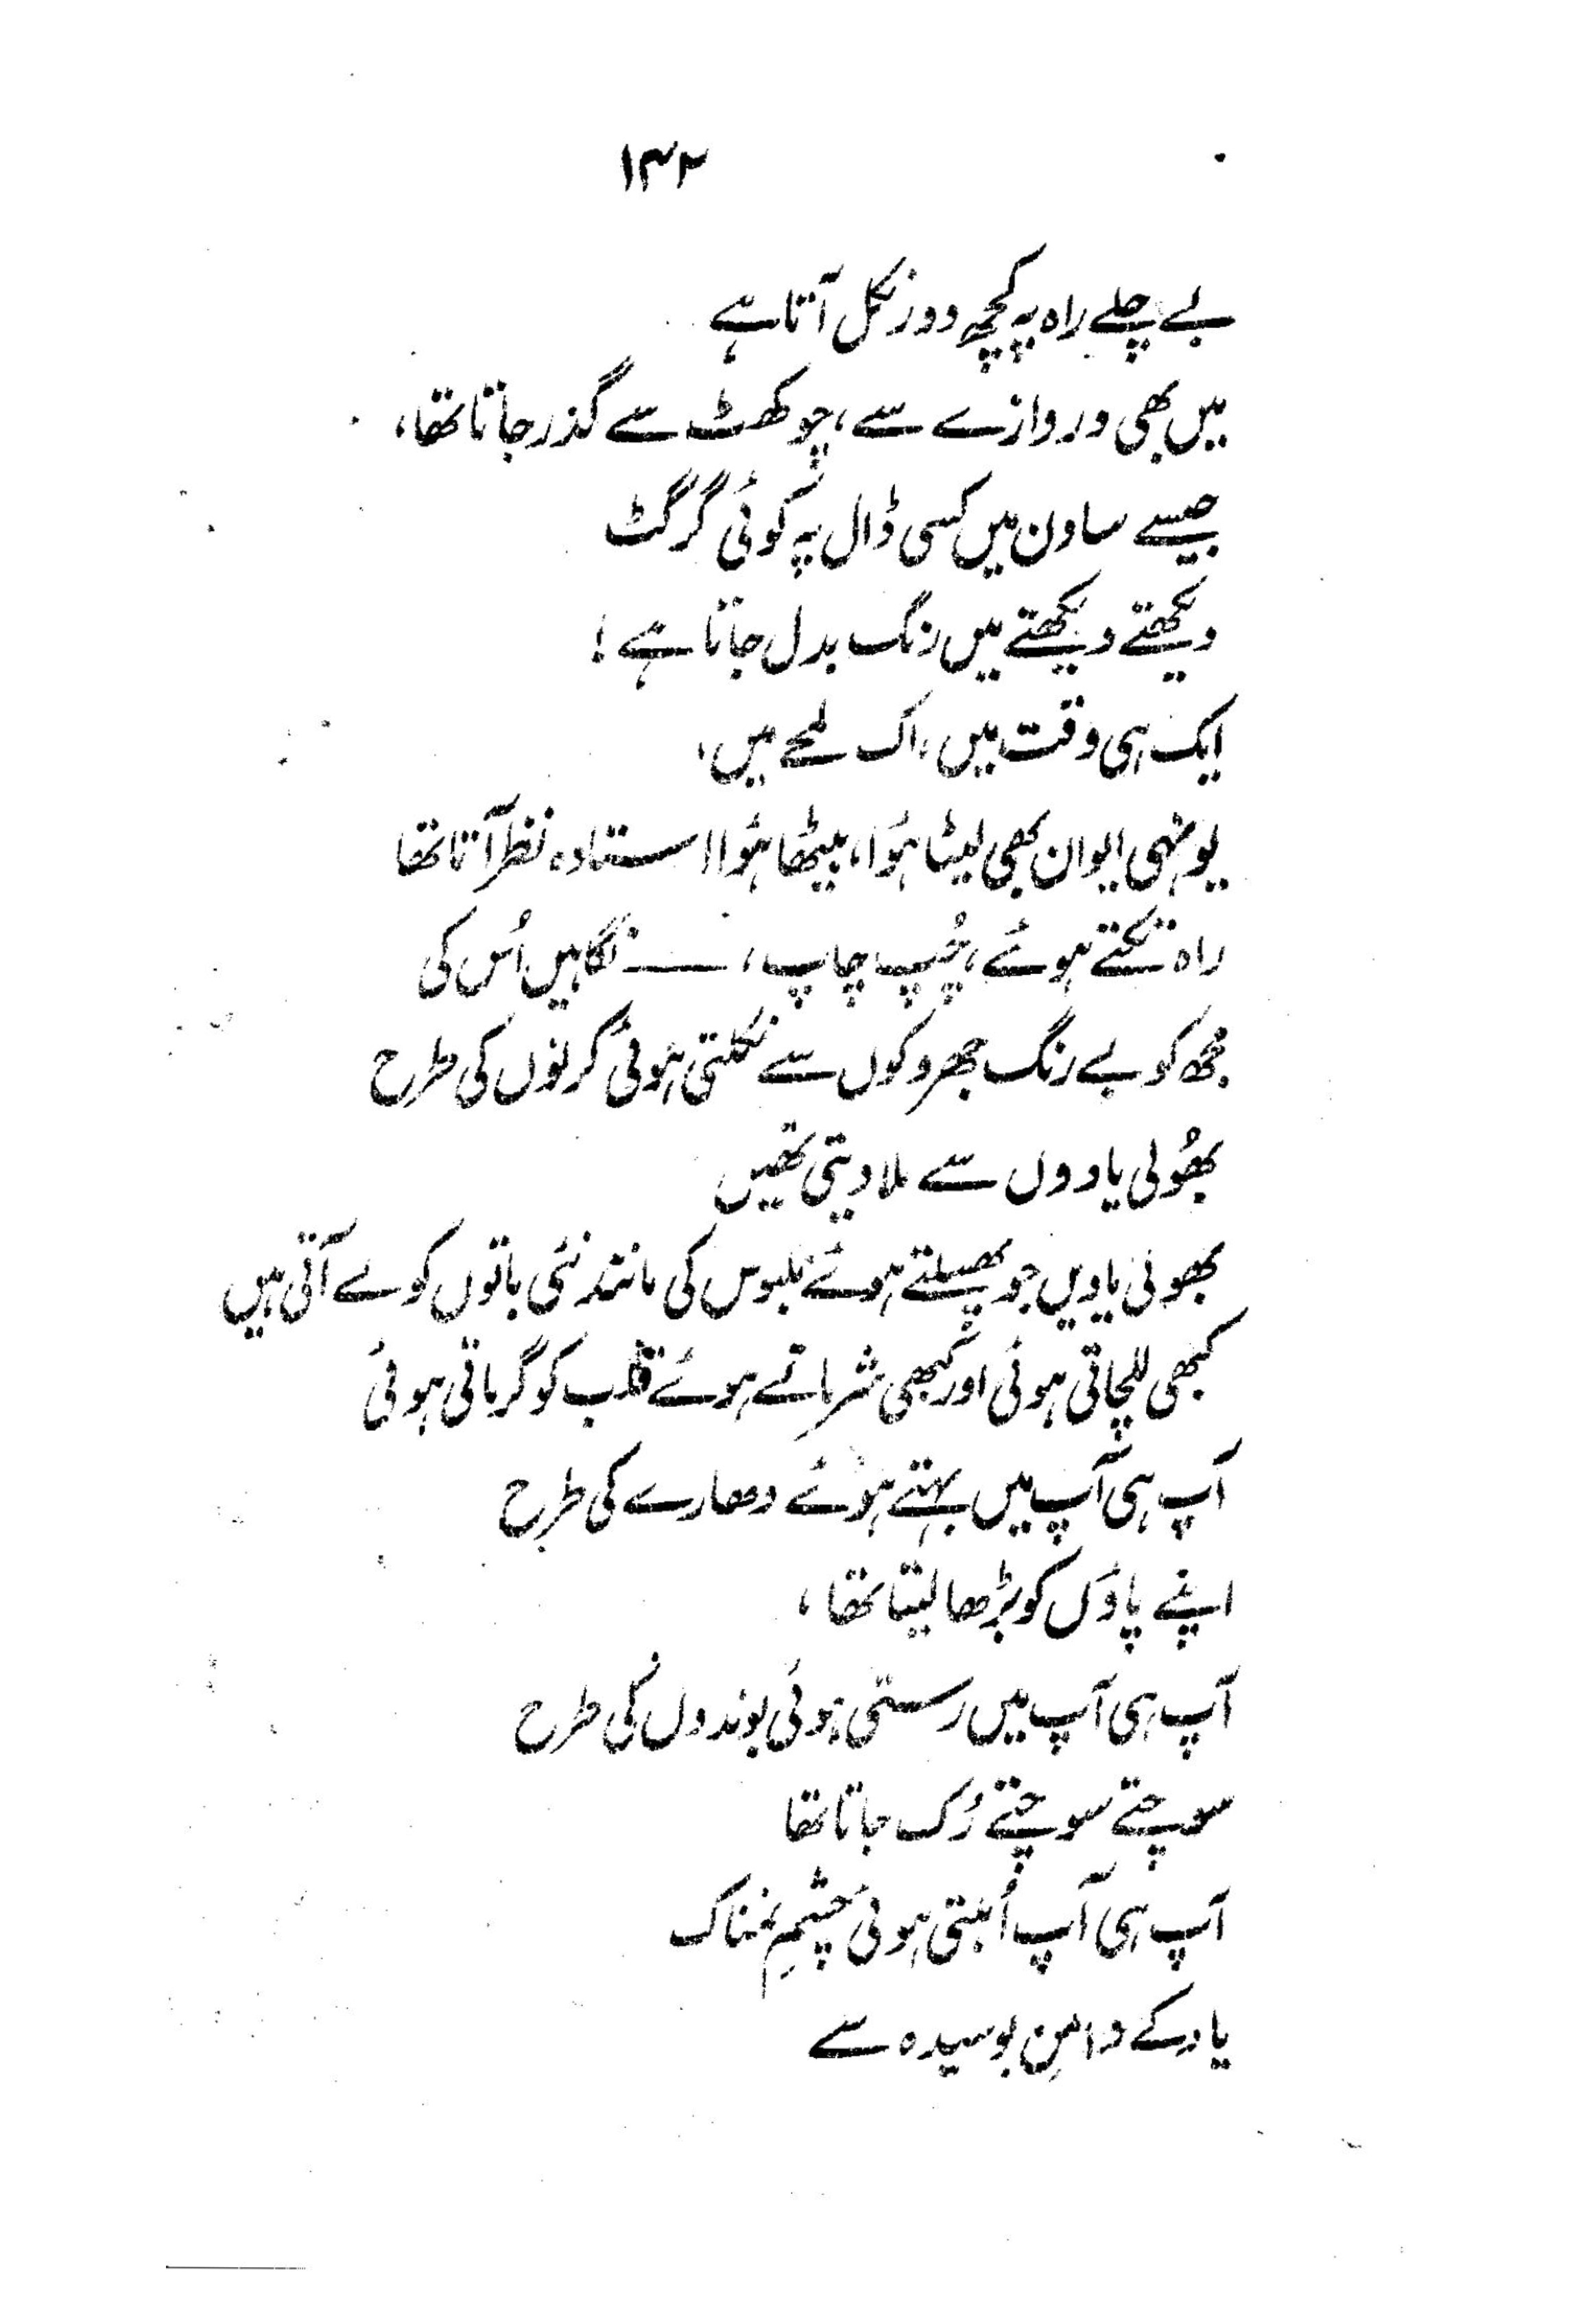 ۱۴۲
بے چلے راہ پہ کچھ دور نکل آتا ہے
میں بھی دروازے سے، چوکھٹ سے گذر جاتا تھا،
جیسے ساون میں کسی ڈال پہ کوئی گرگٹ
دیکھتے دیکھتے میں رنگ بدل جاتا ہے!
ایک ہی وقت میں، اک لمحے میں،
یونہی ایوان بھی لیٹا ہُوا، بیٹھا ہُوا استادہ نظر آتا تھا
راہ تکتے ہوئے، چُپ چاپ، ــــ نگاہیں اُس کی
مجھ کو بے رنگ جھروکوں سے نکلتی ہوئی کرنوں کی طرح
بھُولی یادوں سے ملا دیتی تھیں
بھولی یادیں جو پھسلتے ہوئے ملبوس کی مانند نئی باتوں کو لے آتی ہیں
کبھی للچاتی ہوئی اور کبھی شرماتے ہوئے قلب کو گرماتی ہوئی
آپ ہی آپ میں بہتے ہوئے دھارے کی طرح
اپنے پاؤں کو بڑھا لیتا تھا،
آپ ہی آپ میں رستی ہوئی بوندوں کی طرح
سوچتے سوچتے رُک جاتا تھا
آپ ہی آپ اُبلتی ہوئی چشمِ نمناک
یاد کے دامنِ بوسیدہ سے